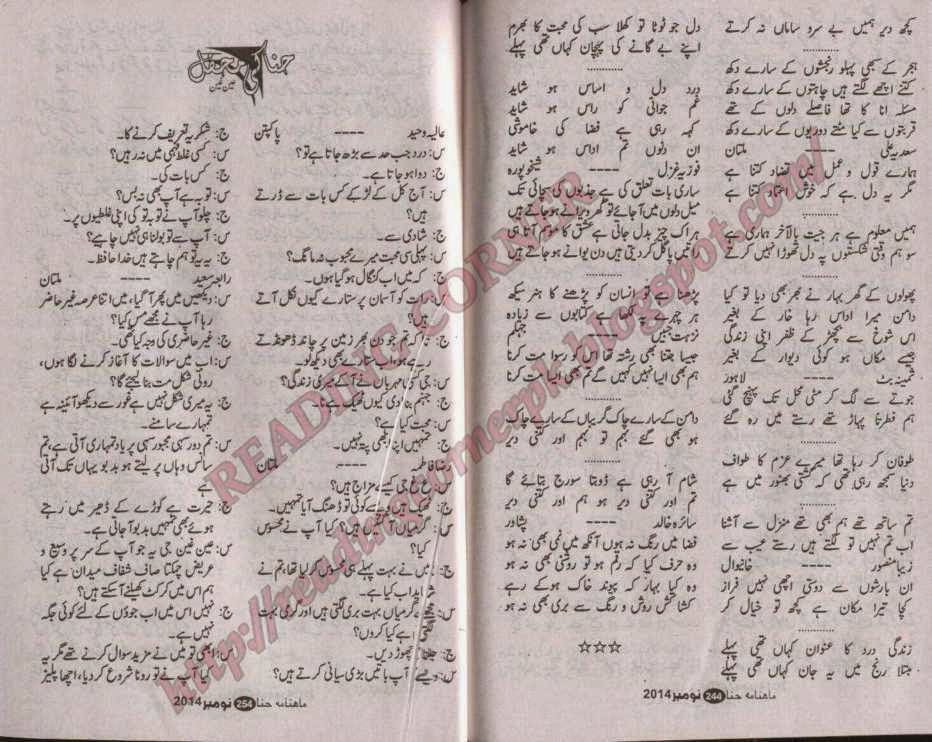 کچھ دیر ہمیں بے سرد ساماں نہ کرتے
ہجر کے سبھی پہلو رنجشوں کے سارے دکھ
کتنے اچھے لگتے ہیں چاہتوں کے سارے دکھ
مسئلہ انا کا تھا فاصلے دلوں کے تھے
قربتوں سے کیا سنتے دوریوں کے سارے دکھ
سعدیہ علی ---- ملتان
ہمارے قول و عمل میں تضاد کتنا ہے
مگر یہ دل ہے کہ خوش اعتماد کتنا ہے
ہمیں معلوم ہے ہر جیت بالآخر ہماری ہے
سو ہم وقتی شکستوں پہ دل تھوڑا نہیں کرتے
پھولوں کے گھر بہار نے گجر بھی دیا تو کیا
دامن میرا اداس رہا خار کے بغیر
اس شوخ سے بچھڑ کے ظفر اپنی زندگی
جیسے مکاں ہو کوئی دیوار کے بغیر
ثمینہ بٹ ---- لاہور
جوتے سے لگ کر مٹی محل تک پہنچ گئی
ہم فطرتا پہاڑ تھے رستے میں رہ گئے
طوفان کر رہا تھا میرے عزم کا طواف
دنیا سمجھ رہی تھی کہ کشتی بھنور میں ہے
تم ساتھ تھے ہم بھی تھے منزل سے آشنا
اب تم نہیں تو لگتے ہیں رستے عجیب سے
زیبا منصور ---- خانیوال
ان بارشوں سے دوستی اچھی نہیں فراز
کچا تیرا مکان ہے کچھ تو خیال کر
زندگی درد کا عنوان کہاں تھی پہلے
مبتلا رنج میں یہ جان کہاں تھی پہلے
دل جو ٹوٹا تو کھلا سب کی محبت کا بھرم
اپنے بے گانے کی پہچان کہاں تھی پہلے
درد دل و اساس ہو شاید
غم جوانی کو راس ہو شاید
کہہ رہی ہے فضا کی خاموشی
ان دلوں تم اداس ہو شاید
فوزیہ غزل ---- شیخوپورہ
ساری بات تعلق کی ہے جذبوں کی سچائی تک
میل دلوں میں آجائے تو گھر ویرانے ہو جاتے ہیں
ہر اک چیز بدل جاتی ہے عشق کا موسم آتا ہی
راتیں پاگل کر دیتی ہیں دن دیوانے ہو جاتے ہیں
پڑھنا ہے تو انسان کو پڑھنے کا ہنر سیکھ
ہر چہرے پہ لکھا ہے کتابوں سے زیادہ
نزہت جبیں ---- جہلم
جیسا جتنا بھی رشتہ تھا اس کو رسوا مت کرنا
ہم بھی ایسا نہیں کہیں گے تم بھی ایسا مت کرنا
دامن کے سارے چاک گریباں کے سارے چاک
ہو بھی گئے بہم تو بہم اور کتنی دیر
شام آ رہی ہے ڈوبتا سورج بتائے گا
تم اور کتنی دیر ہو ہم اور کتنی دیر
سائرہ خالد ---- پشاور
فضا میں رنگ نہ ہوں آنکھ میں نمی بھی نہ ہو
وہ حرف کیا کہ رقم ہو تو روشنی بھی نہ ہو
وہ کیا بہار کہ پیوند خاک ہو کے رہے
کشاکش روش و رنگ سے بری بھی نہ ہو
☆☆☆
ماہنامہ حنا 244 نومبر 2014
حنا کی محفل
عین غین
عالیہ وحید ---- پاکپتن
س: درد جب حد سے بڑھ جاتا ہے تو؟
ج: دوا ہو جاتا ہے۔
س: آج کل کے لڑکے کس بات سے ڈرتے
ہیں؟
ج: شادی سے۔
س: پہلی سی محبت میرے محبوب نہ مانگ؟
ج: کہ میں اب کنگال ہو گیا ہوں۔
س: رات کو آسمان پر ستارے کیوں نکل آتے
ہیں؟
ج: تاکہ تم جو دن بھر زمین پر چاند ڈھونڈتے
رہے ہو، اب ستارے بھی دیکھ لو۔
س: جی کیا مہرباں نے آ کے میری زندگی؟
ج: جہنم بنا دی کیوں ٹھیک ہے نا۔
س: محبت کیا ہے؟
ج: تمہیں اپنا بھی پتہ نہیں۔
رضا فاطمہ ---- ملتان
س: ع غ جی کیسے مزاج ہیں؟
ج: ٹھیک ہیں ویسے کوئی تو ڈھنگ آیا تمہیں۔
س: گرمیاں آ گئیں ہیں؟ کیا آپ نے محسوس
کیا؟
ج: میں نے بہت پہلے ہی محسوس کر لیا تھا، تم نے
شاید اب کیا ہے۔
س: گرمیاں بہت بری لگتی ہیں اور گرمی بہت
ہے کیا کروں؟
ج: جلنا چھوڑ دیں۔
س: ویسے آپ باتیں بڑی سیانی کرتے ہیں؟
ج: شکریہ تعریف کرنے کا۔
س: کسی غلط فہمی میں نہ رہیں؟
ج: کس بات کی۔
س: توبہ ہے آپ بھی نہ بس؟
ج: چلو آپ نے توبہ تو کی اپنی غلطیوں پر۔
س: آپ سے تو بولنا ہی نہیں چاہیے؟
ج: یہ تو ہم چاہتے ہیں خدا حافظ۔
رابعہ سعید ---- ملتان
س: دیکھیں میں پھر آ گیا، میں اتنا عرصہ غیر حاضر
رہا آپ نے مجھے مس کیا؟
ج: غیر حاضری کی وجہ کیا تھی۔
س: اب میں سوالات کا آغاز کرنے لگا ہوں،
روئی شکل مت بنا لیجئے گا؟
ج: یہ میری شکل نہیں ہے غور سے دیکھو آئینہ ہے
تمہارے سامنے۔
س: تم دور سہی مجبور سہی پر یاد تمہاری آتی ہے، تم
سانس وہاں پر لیتے ہو بدبو یہاں تک آتی
ہے
ج: حیرت ہے کوڑے کے ڈھیر میں رہتے
ہوئے بھی تمہیں بدبو آ جاتی ہے۔
س: عین غین جی یہ جو آپ کے سر پر وسیع و
عریض چمکتا صاف شفاف میدان ہے کیا
ہم اس میں کرکٹ کھیلنے آ سکتے ہیں؟
ج: نہیں اس میں اب جوؤں کے لئے کوئی جگہ
نہیں ہے۔
س: ابھی تو میں نے مزید سوال کرنے تھے مگر یہ
کیا آپ نے تو رونا شروع کر دیا، اچھا پلیز
ماہنامہ حنا 254 نومبر 2014
READING CORNER
http://readingcornerpk.blogspot.com/